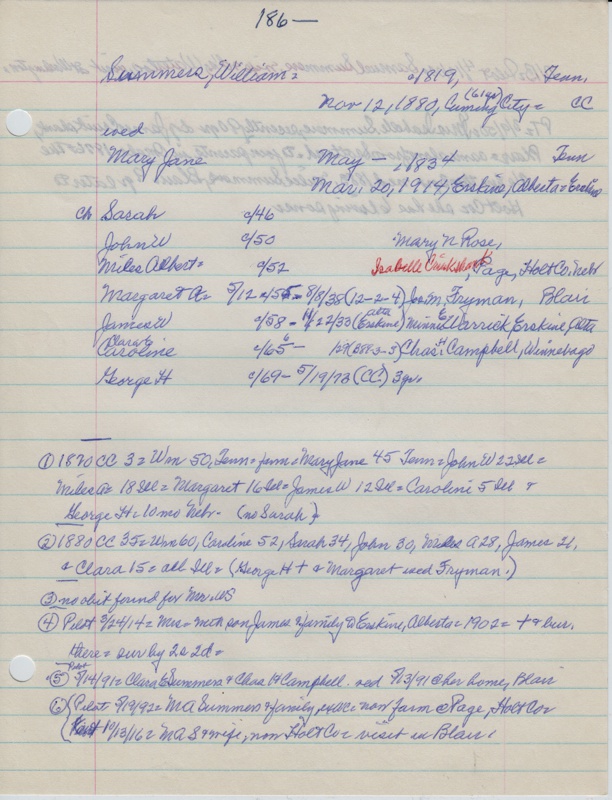 186—
Summers, William = c/1819, Tenn.
Nov 12, 1880, (61 yr) Cuming City = CC
wed
Mary Jane May — , 1834 Tenn
Mar. 20, 1914, Erskine, Alberta = Erskine
ch Sarah c/46
John W c/50 Mary N Rose,
Miles Albert = c/52 Isabelle Cruikshank, Page, Holt Co, Nebr
Margaret A = 5/12 c/55 = 8/8/38 (12-2-4) Jos M. Fryman, Blair
James W c/58 - 11/22/33 (Alta Erskine) Minnie Ez Derrick Erskine, Alta
Clara E
Caroline c/65 - 129 (BB9 3-3) Chas H Campbell, Winnebago
George H c/69 - 5/19/73 (CC) 3 yr.
① 1870 CC 3 = Wm 50, Tenn = farm = Mary Jane 45 Tenn = John W 22 Ill =
Miles A = 18 Ill = Margaret 16 Ill = James W 12 Ill = Caroline 5 Ill &
George H = 10 mo Nebr. (no Sarah)
② 1880 CC 35 = Wm 60, Caroline 52, Sarah 34, John 30, Miles A 28, James 21,
& Clara 15 = all Ill = (George H † & Margaret wed Fryman.)
③ no obit found for Mr. WS
④ Pilot 9/24/14 = Mrs = with son James & family to Erskine, Alberta = 1902 = † & bur.
there = sur by 2s 2d =
⑤ Pilot 8/14/91 = Clara E Summers & Chas H Campbell. wed 8/13/91 @ her home, Blair
⑥ (Pilot 8/19/92 = MA Summers & family, ex CC = now farm @ Page, Holt Co =
( 10/13/16 = MA S & wife, now Holt Co = visit in Blair.